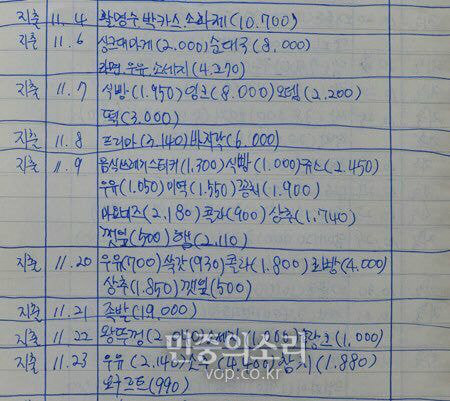 지출 11. 4 활명수 박카스 소화제(10.700)
지출 11. 6 싱크대마개(2.000)순대국(8,000)
라면.우유.소세지(4.270)
지출 11. 7 식빵(1.950)잉크(8.000)오뎅(2.200)
떡(3.000)
지출 11. 8 프리마(3.140)바지락(6.000)
지출 11. 9 음식쓰레기스티커(1,300)식빵(1.000)쥬스(2.450)
우유(1.050)미역(1.550)꽁치(1.900)
마요네즈(2.180)콜라(900)상추(1.740)
깻잎(500)햄(2.110)
지출 11. 20 우유(700)쑥갓(930)콜라(1.800)(4.000)
상추(1.850)깻잎(500)
지출 11. 21 족발(19,000)
지출 11. 22 왕뚜껑 (1,000)
지출 11. 23 우유(2.140) 참치(1.880)
요구르트(990)
민중의소리
vop.co.kr